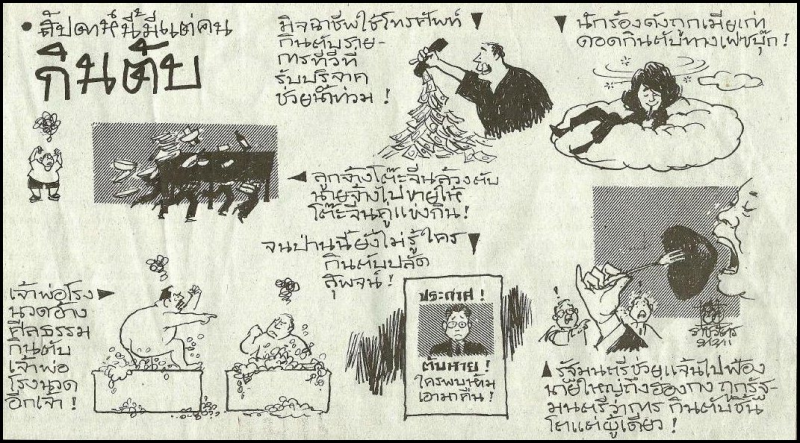 • สัปดาห์นี้มีแต่คน
กินตับ
มิจฉาชีพใช้โทรศัพท์
กินตับราย-
การทีวีที่
รับบริจาค
ช่วยน้ำท่วม!
นักร้องดังถูกเมียเก่า
ดอดกินตับทางเฟซบุ๊ก!
ลูกจ้างโต๊ะจีนล้วงตับ
นายจ้างไปขายให้
โต๊ะจีนคู่แข่งกิน!
จนป่านนี้ยังไม่รู้ใคร
กินตับปลัด
สุพจน์!
เจ้าพ่อโรง
นวดอ้าง
ศีลธรรม
กินตับ
เจ้าพ่อ
โรงนวด
อีกเจ้า!
ประกาศ!
ตับหาย!
ใครพบเห็น
เอามาคืน!
รัฐมนตรีช่วยแจ้นไปฟ้อง
นายใหญ่ถึงฮ่องกง ถูกรัฐ-
มนตรีว่าการ กินตับชิ้น
โตแต่ผู้เดียว!